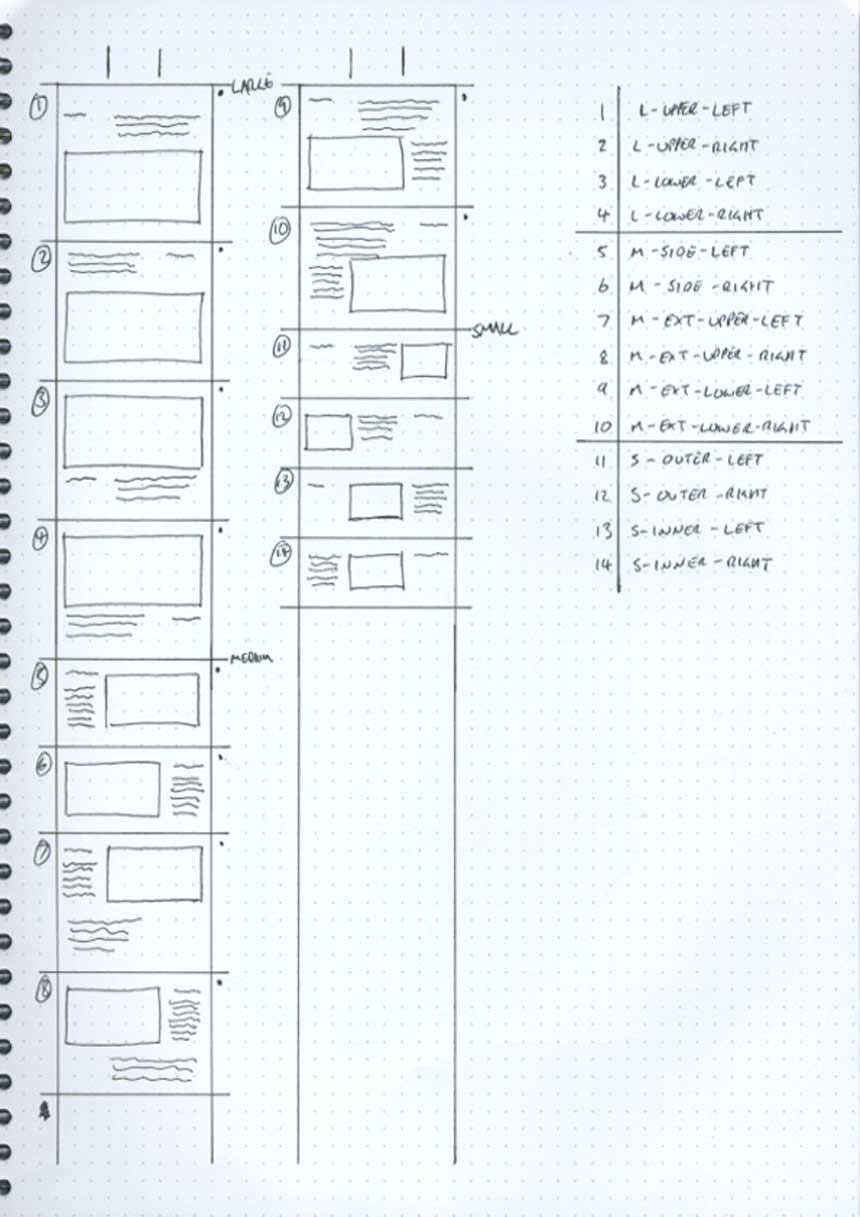 LARGE
1
2
3
4
MEDIUM
5
6
7
8
9
10
SMALL
11
12
13
14
1 L-UPPER-LEFT
2 L-UPPER-RIGHT
3 L-LOWER-LEFT
4 L-LOWER-RIGHT
5 M-SIDE-LEFT
6 M-SIDE-RIGHT
7 M-EXT-UPPER-LEFT
8 M-EXT-UPPER-RIGHT
9 M-EXT-LOWER-LEFT
10 M-EXT-LOWER-RIGHT
11 S-OUTER-LEFT
12 S-OUTER-RIGHT
13 S-INNER-LEFT
14 S-INNER-RIGHT